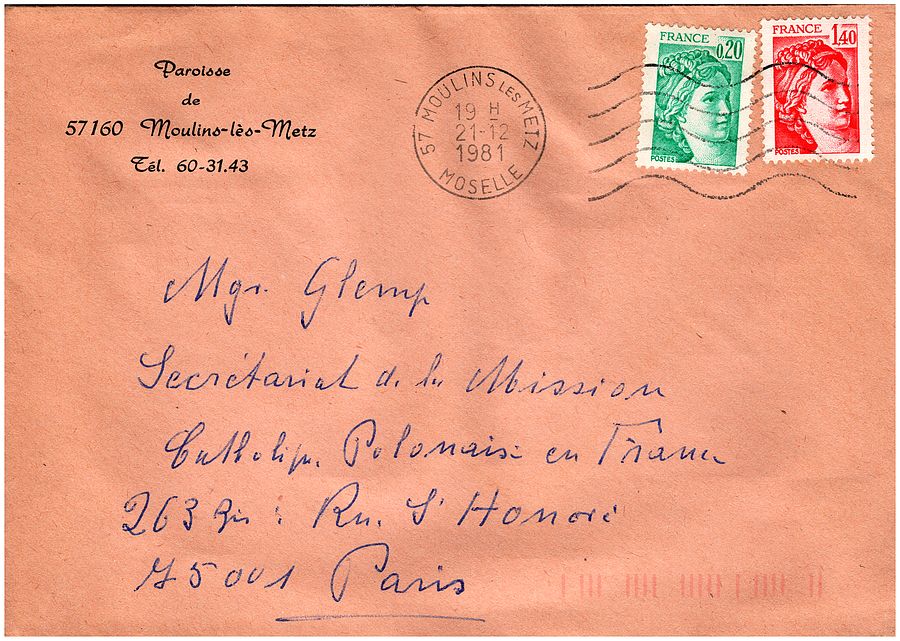 Paroisse
de
57160 Moulins-lès-Metz
Tél. 60-31.43
57 MOULINS LES METZ
19 H
21-12
1981
MOSELLE
FRANCE
0,20
POSTES
FRANCE
1,40
POSTES
Mgr. Glemp
Secrétariat de la Mission
Catholique Polonaise en France
263 Bis : Rue S' Honoré
75001 Paris